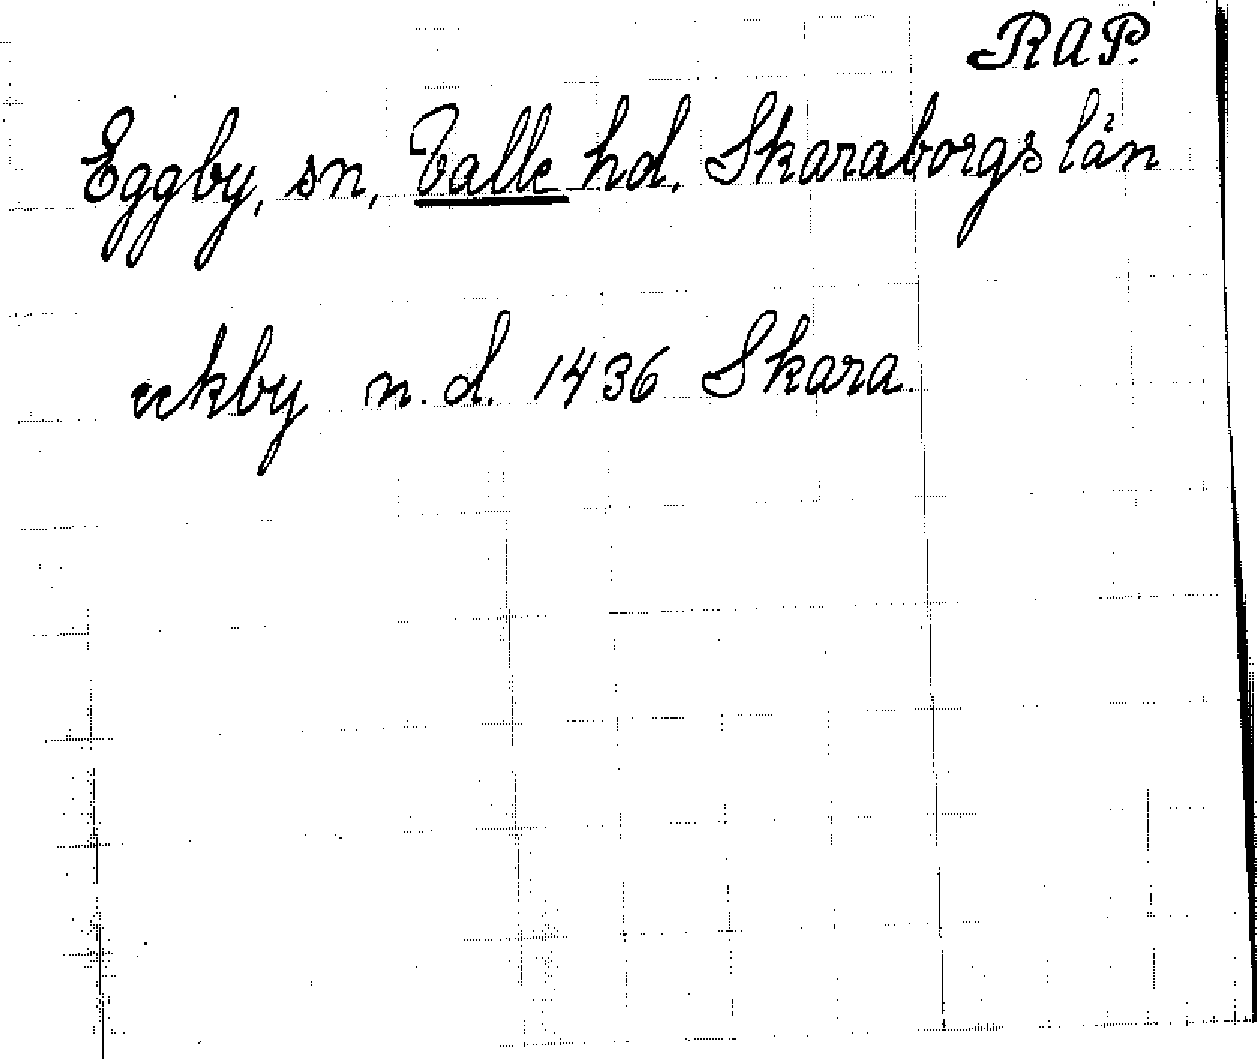 RAP.
Eggby, sn, Valle hd. Skaraborgs län
eckby n. d. 1436 Skara.